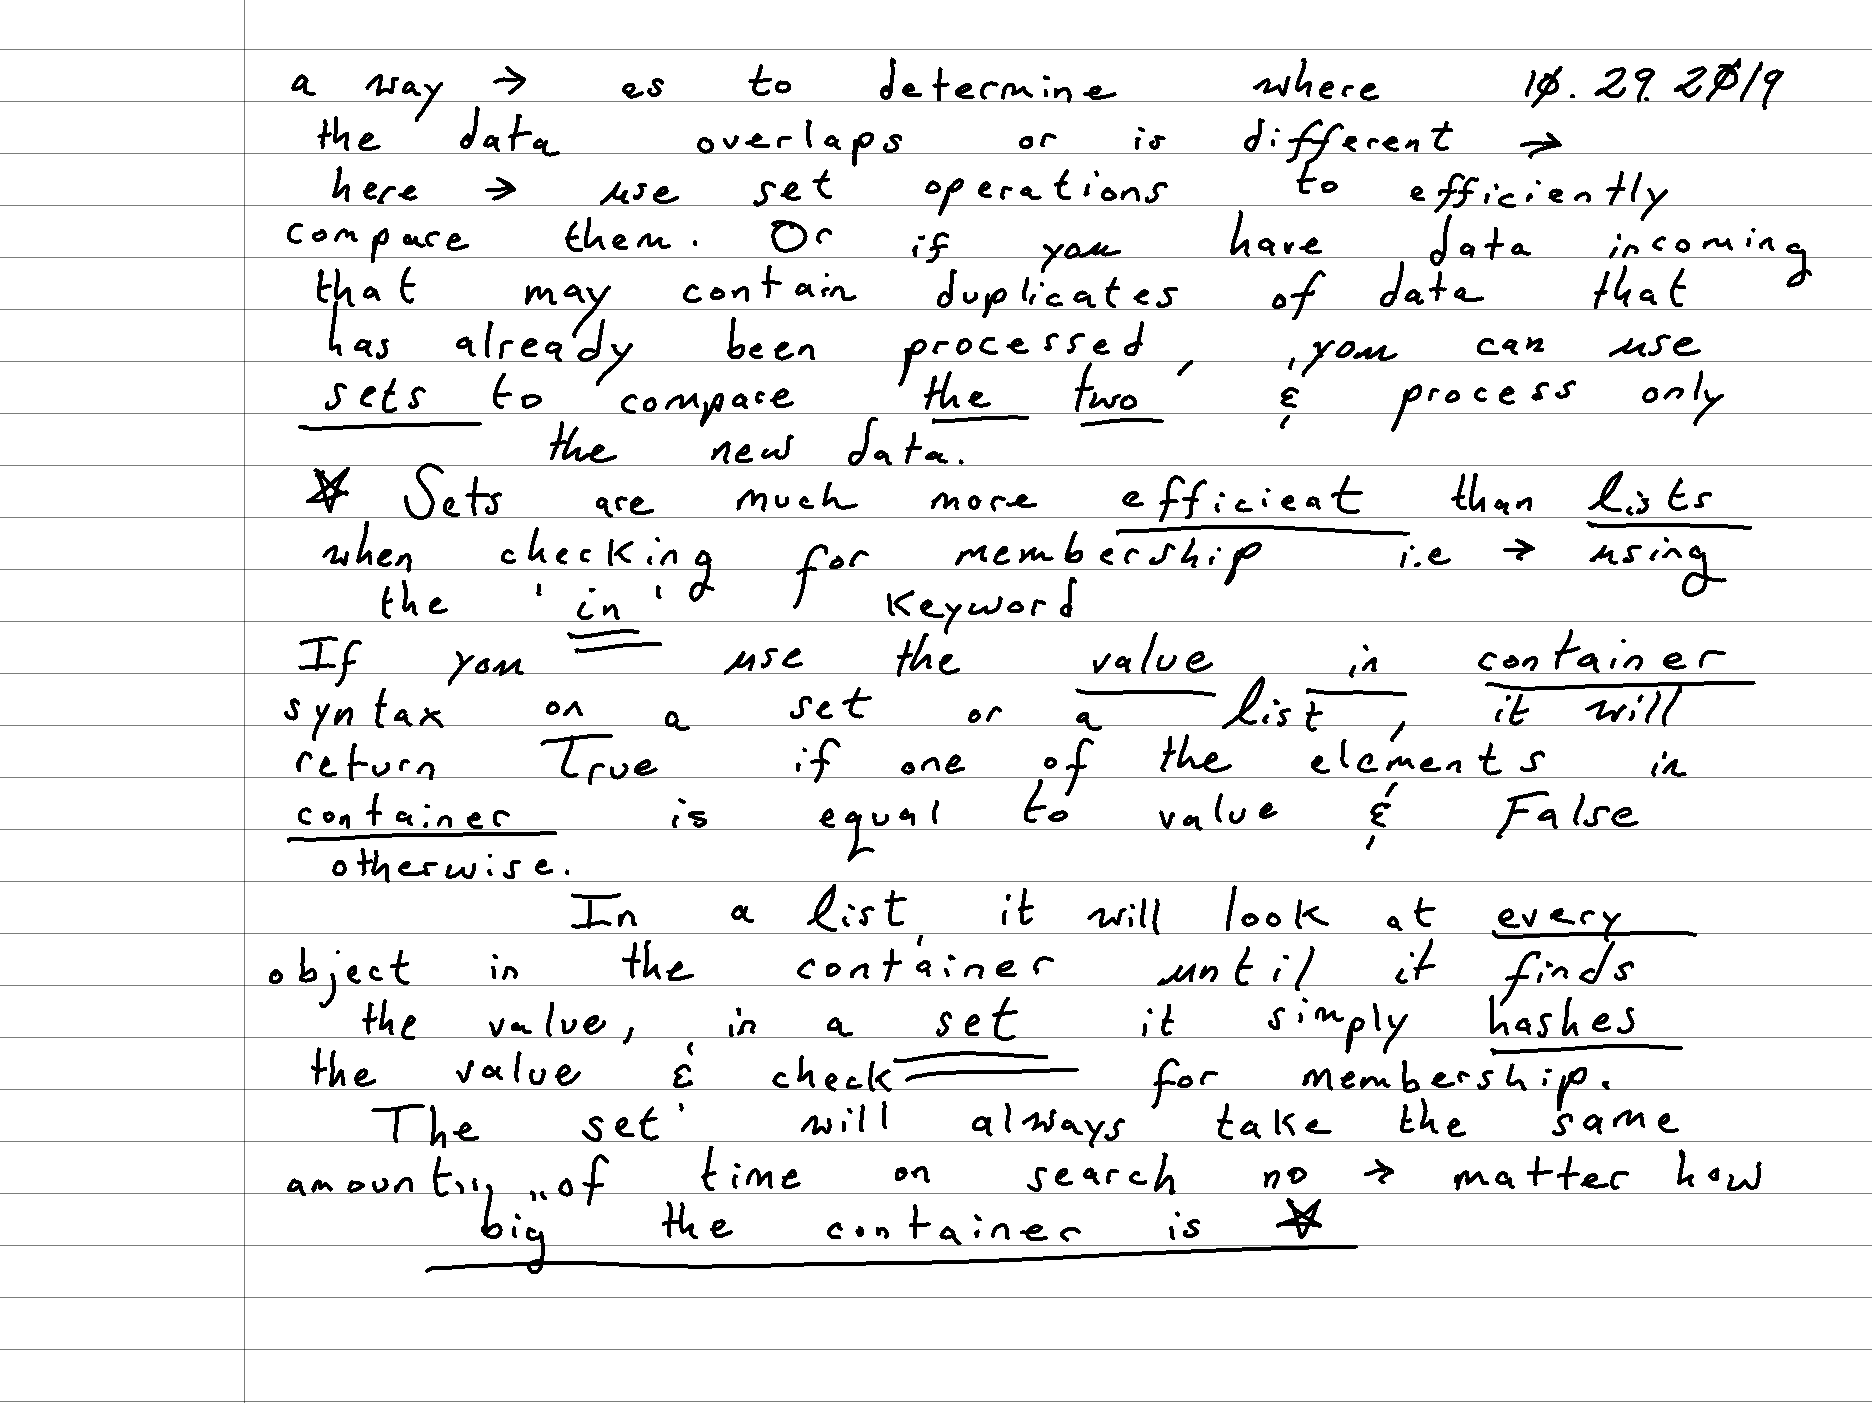 a way → as to determine where 10.29.2019
the data overlaps or is different →
here → use set operations to efficiently
compare them. Or if you have data incoming
that may contain duplicates of data that
has already been processed, you can use
sets to compare the two & process only
the new data.
☆ Sets are much more efficient than lists
when checking for membership i.e → using
the 'in' keyword
If you use the value in container
syntax on a set or a list, it will
return True if one of the elements in
container is equal to value & False
otherwise.
In a list, it will look at every
object in the container until it finds
the value, in a set it simply hashes
the value & check for membership.
The set will always take the same
amount of time on search no → matter how
big the container is ☆